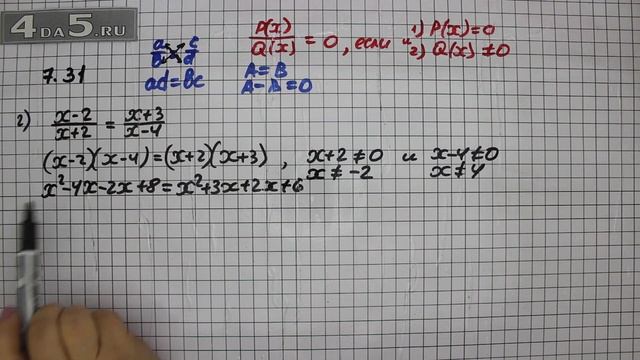 4DA5.RU
7.31
a/b = c/d
ad = bc
P(x)/Q(x) = 0, если 1) P(x) = 0
и 2) Q(x) ≠ 0
A = B
A - B = 0
2) x-2/x+2 = x+3/x-4
(x-2)(x-4) = (x+2)(x+3), x+2 ≠ 0 и x-4 ≠ 0
x ≠ -2 x ≠ 4
x²-4x-2x+8 = x²+3x+2x+6